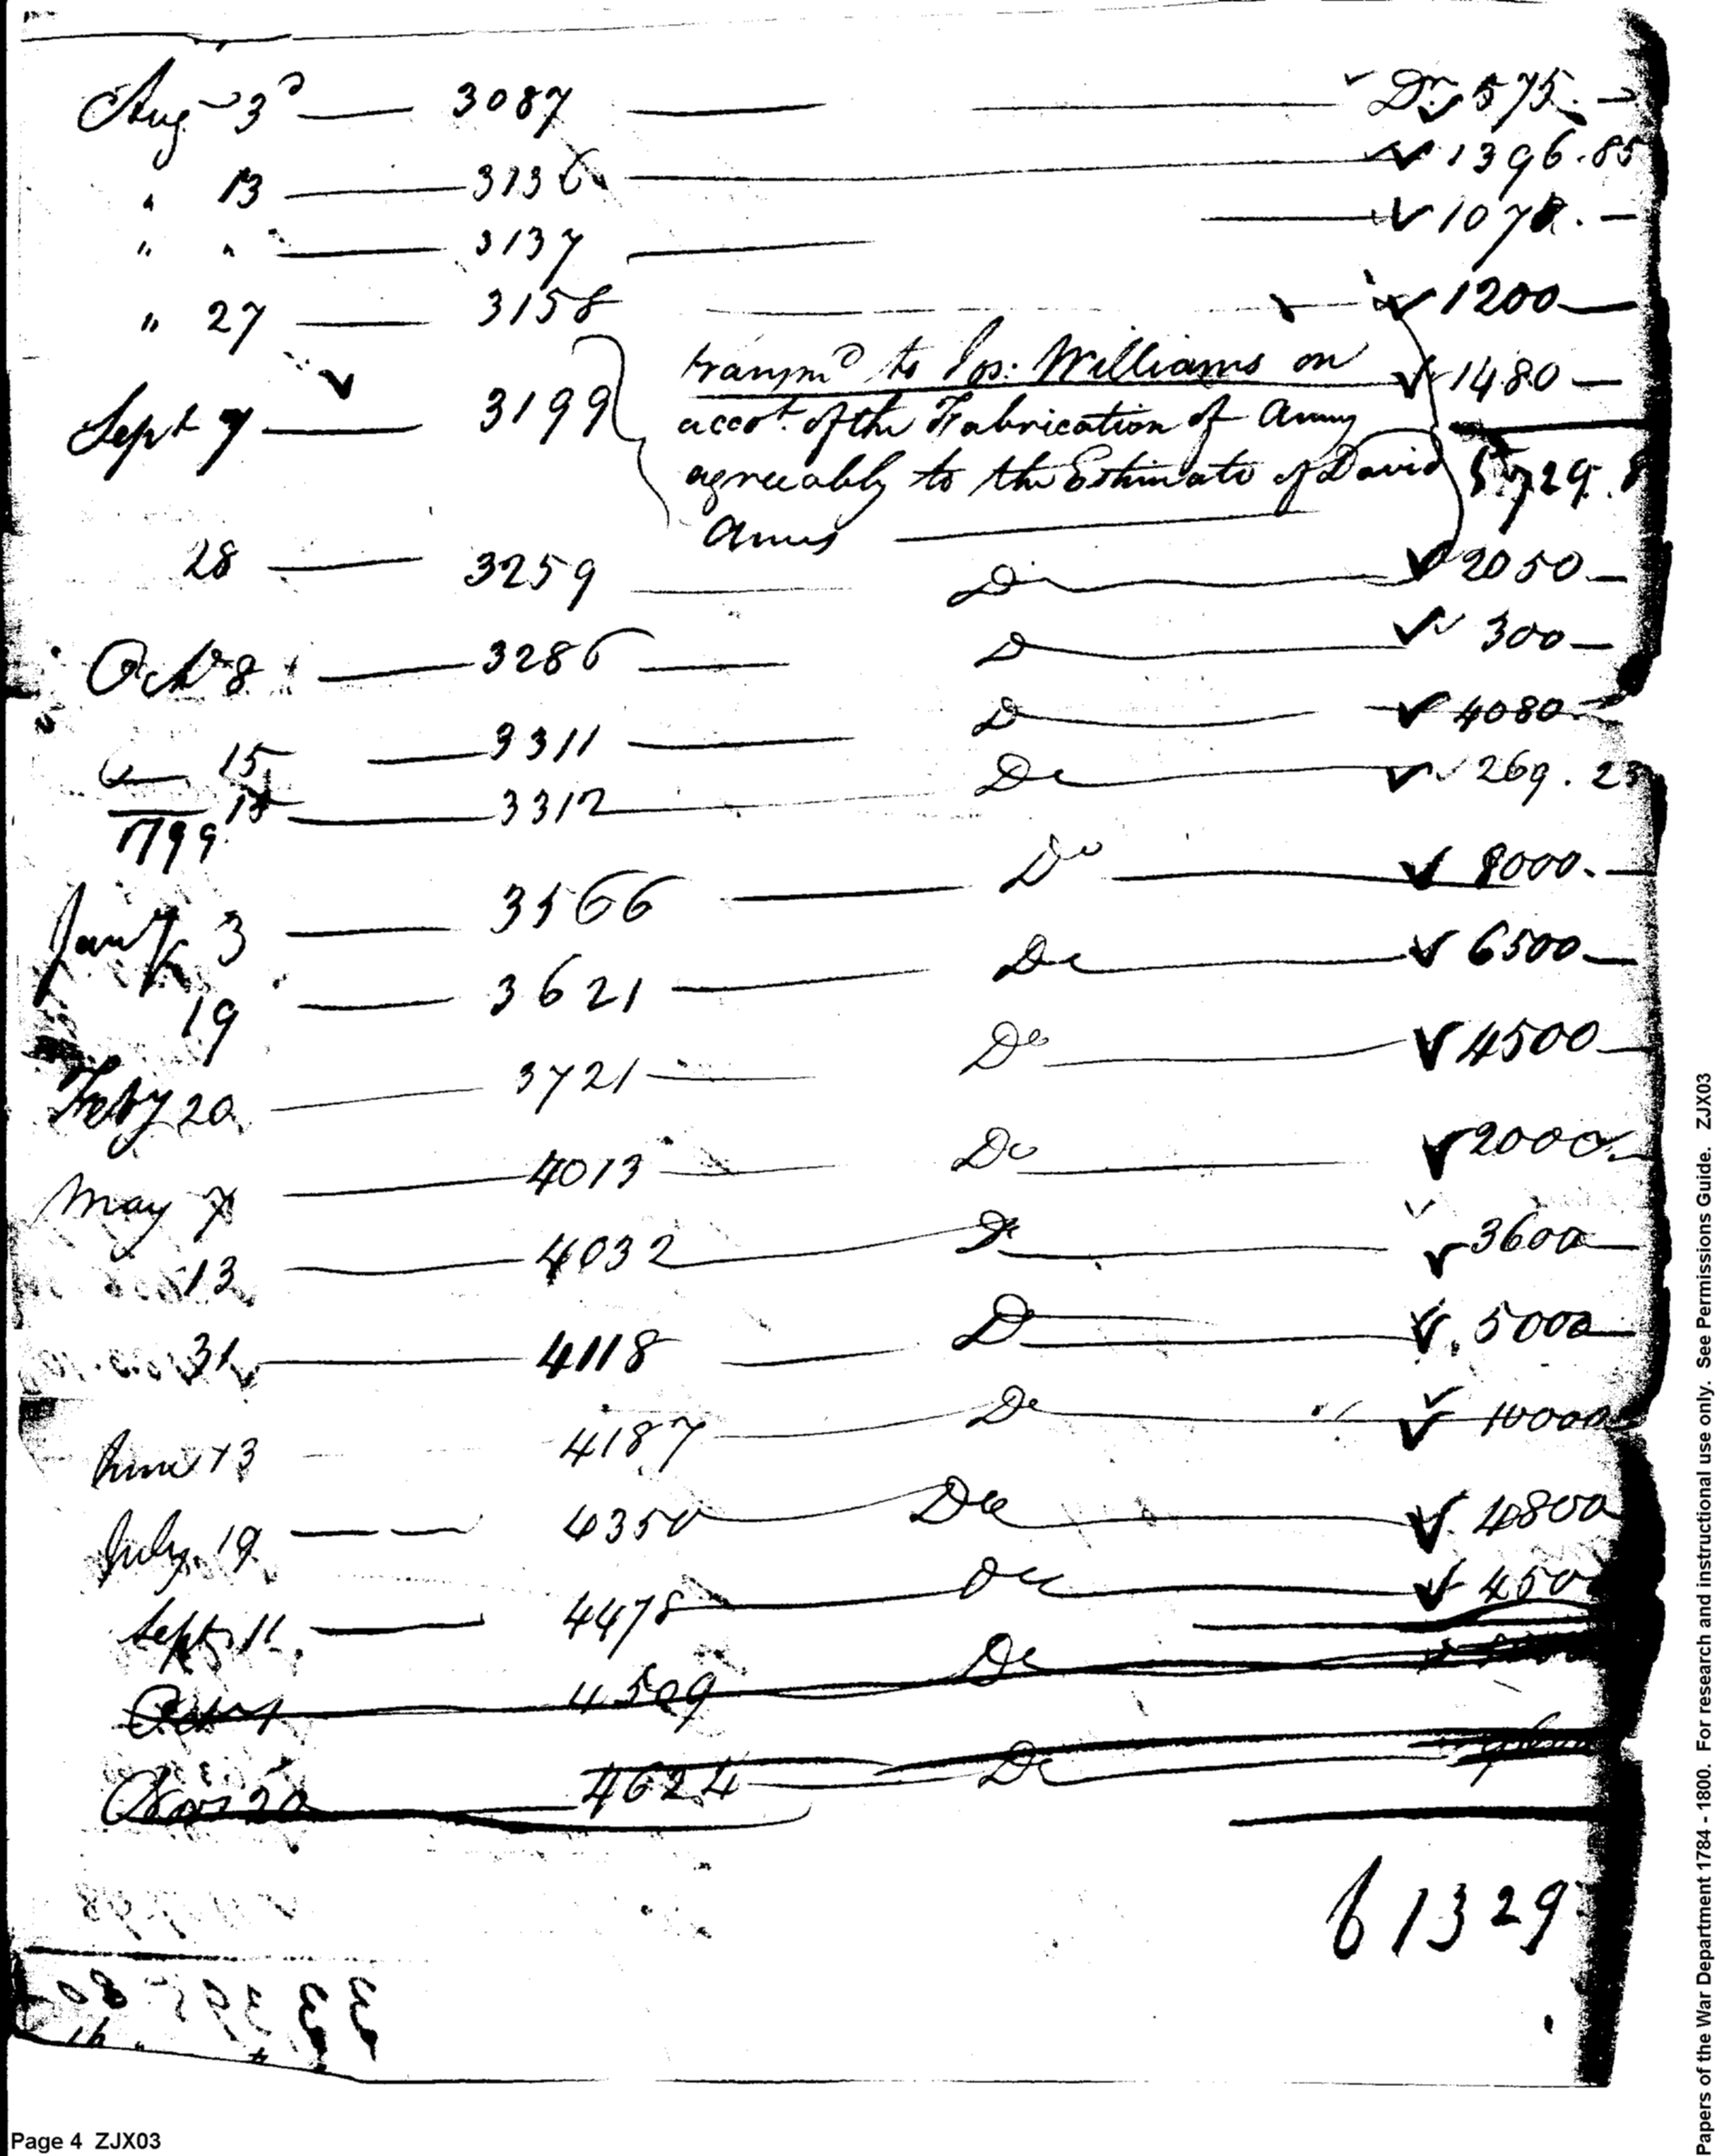 Augt 3d — 3087 — Drs 575. —
" 13 — 3136 — 1396.85
" " — 3137 — 1078. —
" 27 — 3158 — 1200 —
Sept 7 — 3199 transmd to Jos: Williams on 1480 —
accot. of the Fabrication of Arms
agreeably to the Estimate of David 5729.8
Ames —
28 — 3259 — Do — 2050 —
Octr 8 — 3286 — Do — 300 —
15 — 3311 — Do — 4080
15 — 3312 — Do — 269.23
1799
Jany 3 — 3566 — Do — 8000. —
19 — 3621 — Do — 6500 —
Feby 20 — 3721 — Do — 4500 —
May 7 — 4013 — Do — 2000. —
13 — 4032 — Do — 3600 —
31 — 4118 — Do — 5000 —
June 13 — 4187 — Do — 10000
July 19 — 4350 — Do — 4800
Sept 11 — 4478 — Do — 450
4509 — Do
20 — 4624 — Do
61329
Page 4 ZJX03
Papers of the War Department 1784 - 1800. For research and instructional use only. See Permissions Guide. ZJX03